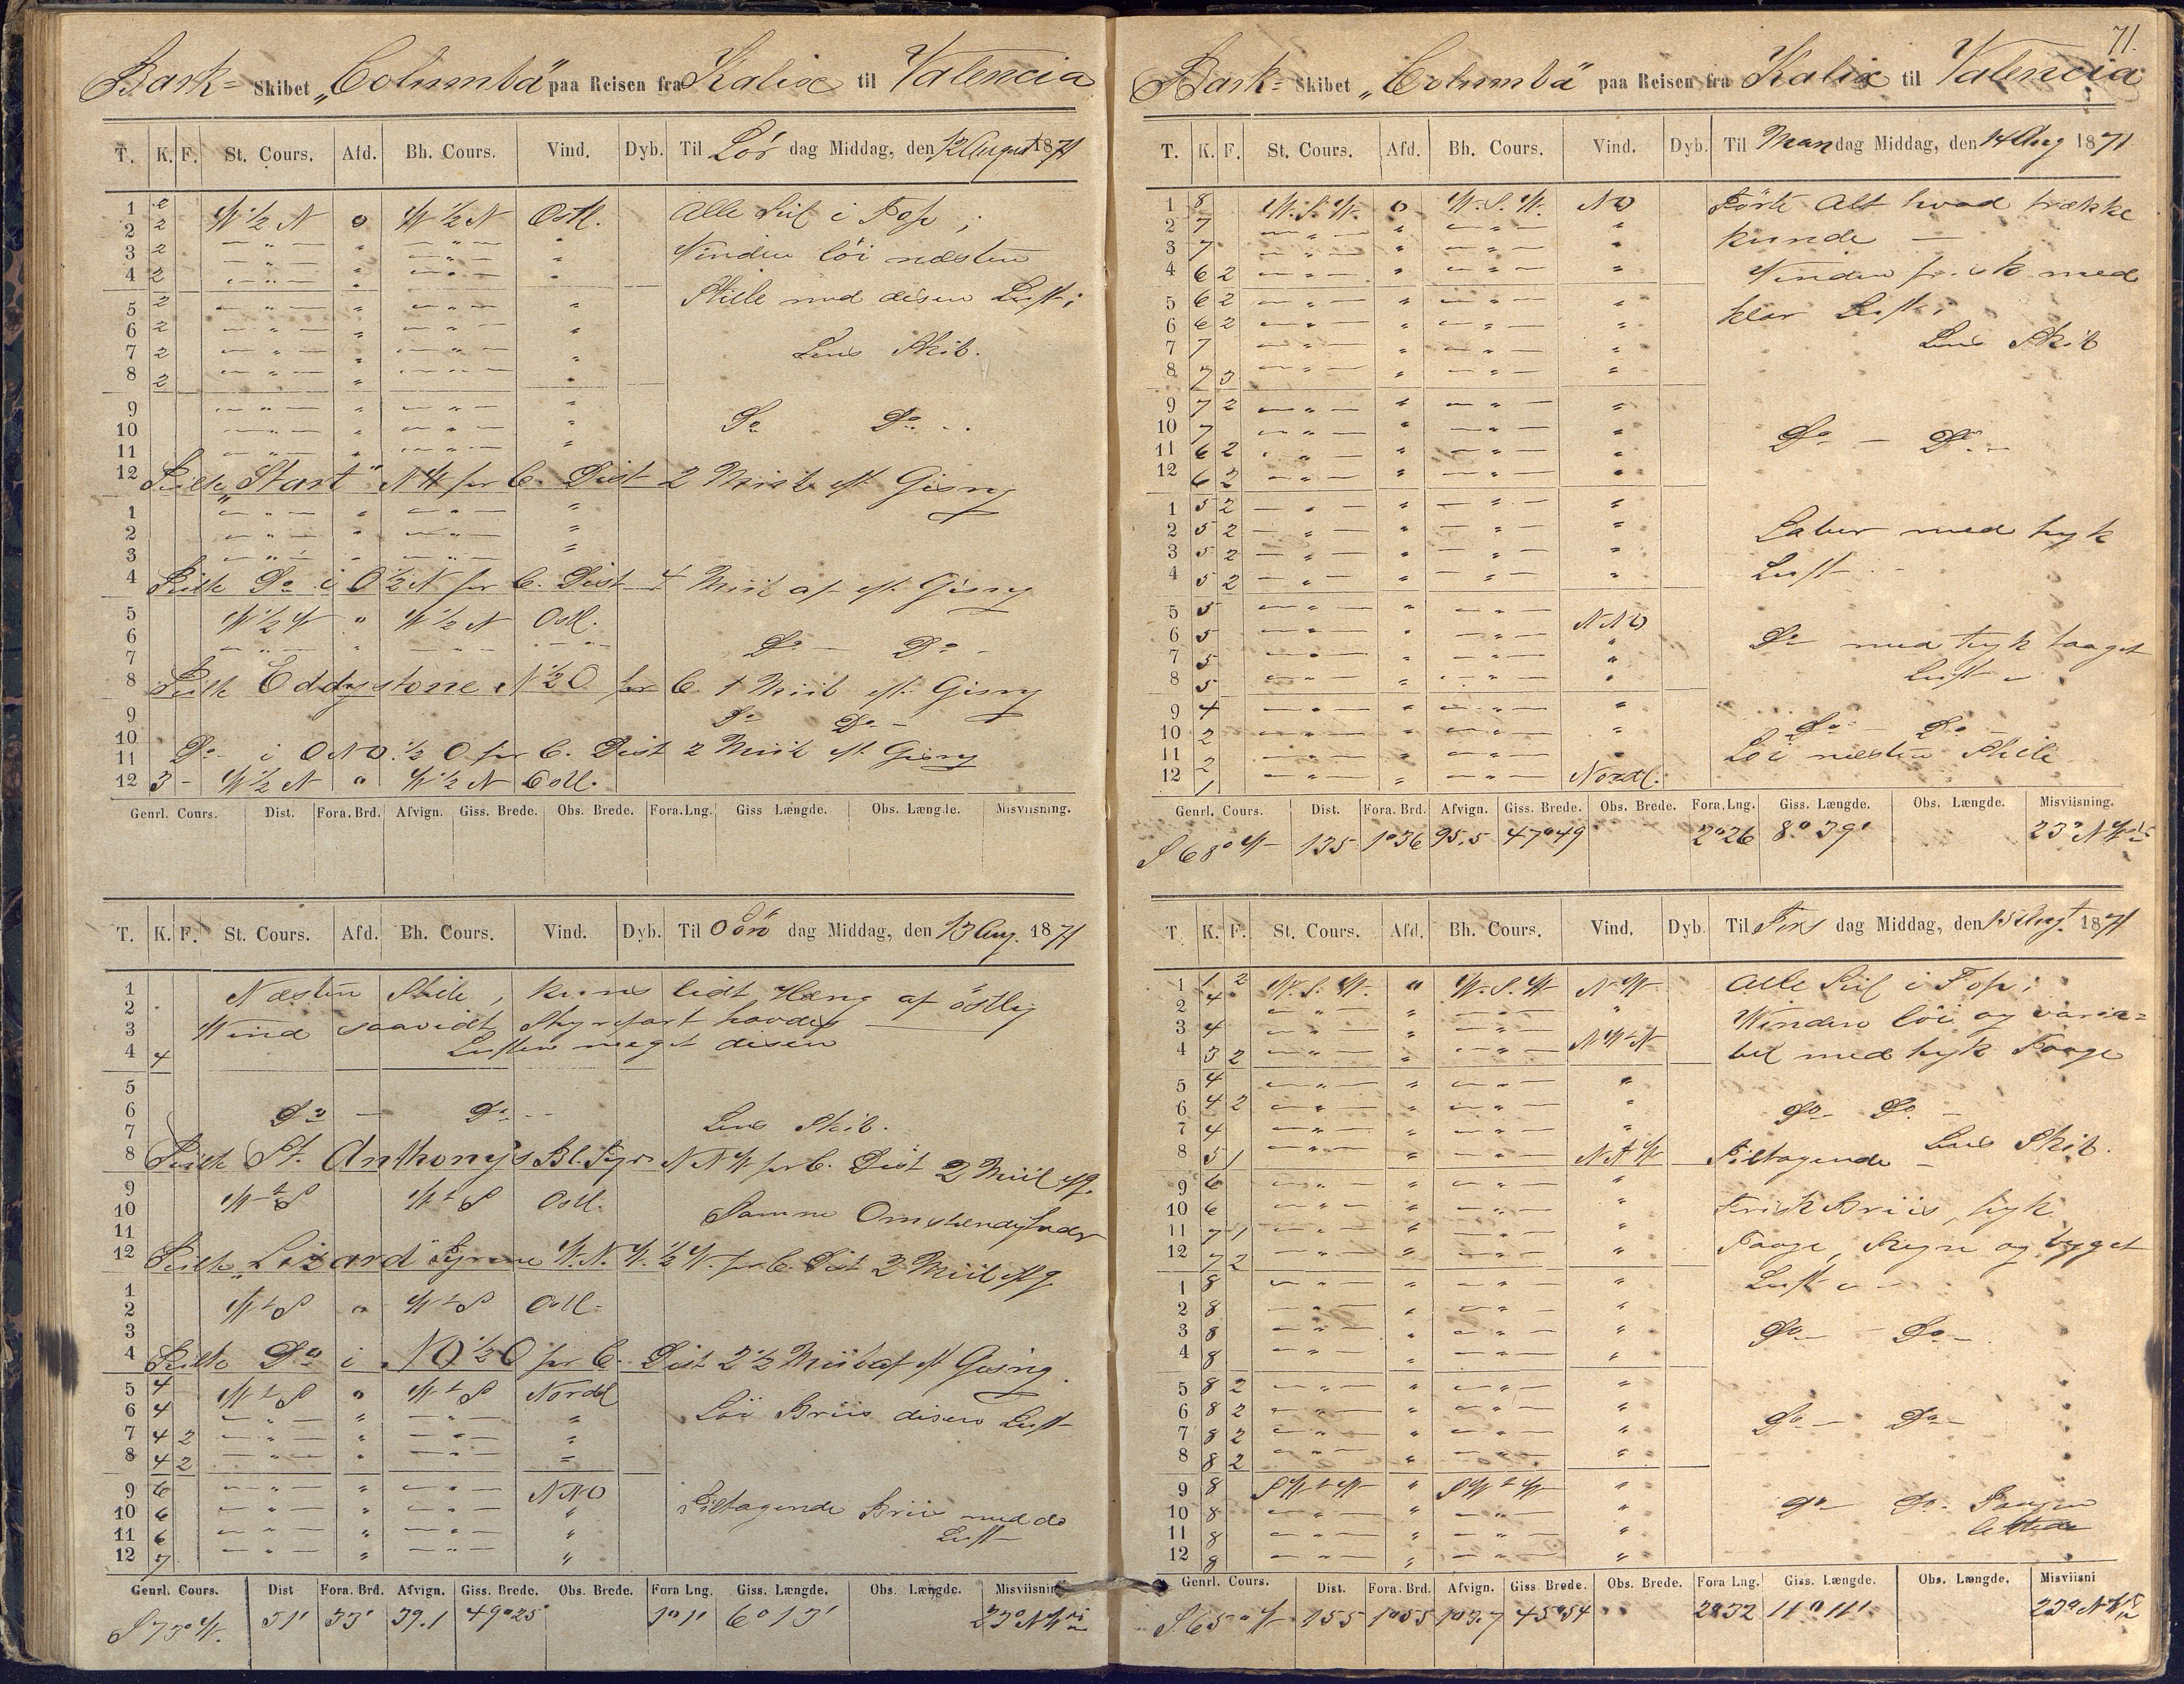 Bark= Skibet „Columba" paa Reisen fra Kalix til Valencia
T. K. F. St. Cours. Afd. Bh. Cours. Vind. Dyb. Til Lör dag Middag, den 12 August 1871
1 2 W ½ N o W ½ N Ostl. Alle Seil i Top ;
2 2 — " — " — " — "
3 2 — " — " — " — " Vinden löi næsten
4 2 — " — " — " — "
5 2 — " — " — " — " Stille med disen Luft ;
6 2 — " — " — " — "
7 2 — " — " — " — " Lens Skib.
8 2 — " — " — " — "
9 — " — " — " — "
10 — " — " — " — " Do Do
11 — " — " — " — "
12 Peilte „Start" NW pr C. Dist 2 Miil eft Gisng
1 — " — " — " — "
2 — " — " — " — "
3 — " — " — " — "
4 Peilte Do i O ½ N pr C. Dist 4 Miil af eft. Gisng
5 W ½ N " W ½ N Ostl.
6 — " — " — " — " Do — Do -
7
8 Peilte Eddystone N ½ O pr C. 1 Miil eft. Gisng
9 Do Do -
10
11 Do - i ONO. ½ O pr C. Dist 2 Miil eft Gisng
12 3 - W ½ N " W ½ N Ostl.
Genrl. Cours. Dist. Fora. Brd. Afvign. Giss. Brede. Obs. Brede. Fora. Lng. Giss Længde. Obs. Længde. Misviisning.
T. K. F. St. Cours. Afd. Bh. Cours. Vind. Dyb. Til Sön dag Middag, den 13 Aug. 1871
1 Næsten Stille, kuns lidt Hæng af östlig
2
3 Wind saavidt Styrefart havdes
4 4 Luften meget disen
5
6 Do — Do - -
7 Lens Skib.
8 Peilte St. Anthonys Bl. Fyr NNW pr C. Dist 2 Miil eft g.
9 W t S W t S Ostl.
10 Samme Omstendigheder
11
12 Peilte „Lizard" Fyrene W. N. W. ½ W. pr C. Dist 2 Miil eft g
1
2 W t S " W t S Ostl -
3
4 Peilte Do i NO ½ O pr C. Dist 2 ½ Miil af eft Gisng.
5 4 W t S o W t S Nordl
6 4 — " — " — " — " Löi Briis disen Luft
7 4 2 — " — " — " — "
8 4 2 — " — " — " — "
9 6 — " — " — " — NNO
10 6 — " — " — " — " Tiltagende Briis med do
11 6 — " — " — " — " Luft
12 7 — " — " — " — "
Genrl. Cours. Dist Fora. Brd. Afvign. Giss. Brede. Obs. Brede. Fora Lng. Giss. Længde. Obs. Længde. Misviisning
S 73° W. 51' 33' 39.1 49°25' 1°1' 6° 13' 23° NW
71.
Bark= Skibet „Columba" paa Reisen fra Kalix til Valencia
T. K. F. St. Cours. Afd. Bh. Cours. Vind. Dyb. Til Man dag Middag, den 14 Aug 1871
1 8 W. S. W. o W. S. W. NO Förte Alt hvad trække
2 7 — " — " — " — " kunde —
3 7 — " — " — " — "
4 6 2 — " — " — " — " Vinden frisk med
5 6 2 — " — " — " — " klar Luft ;
6 6 2 — " — " — " — " Lens Skib
7 7 — " — " — " — "
8 7 3 — " — " — " — "
9 7 2 — " — " — " — "
10 7 — " — " — " — " Do — Do -
11 6 2 — " — " — " — "
12 6 2 — " — " — " — "
1 5 2 — " — " — " — "
2 5 2 — " — " — " — " Laber med tyk
3 5 2 — " — " — " — "
4 5 2 — " — " — " — " Luft
5 5 — " — " — " — NNO
6 5 — " — " — " — " Do med tyk taaget
7 5 — " — " — " — " Luft
8 5 — " — " — " — "
9 4 — " — " — " — "
10 2 — " — " — " — " Do — Do
11 2 — " — " — " — Löi næsten Stille
12 1 — " — " — " — Nordl.
Genrl. Cours. Dist. Fora. Brd. Afvign. Giss. Brede. Obs. Brede. Fora. Lng. Giss. Længde. Obs. Længde. Misviisning.
S 68° W 135 1°36 95.5 47°49 2°26 8° 39' 23° NW
T. K. F. St. Cours. Afd. Bh. Cours. Vind. Dyb. Til Tirs dag Middag, den 15 Augt. 1871
1 1 2 W. S. W. " W. S. W NW Alle Seil i Top ;
2 4 — " — " — " — "
3 4 — " — " — " — Vinden löi og varia=
4 3 2 — " — " — " — NWtN bel med tyk Taage
5 4 — " — " — " — "
6 4 2 — " — " — " — " Do — Do —
7 4 — " — " — " — " Lens Skib.
8 5 1 — " — " — " — NNW Tiltagende —
9 6 — " — " — " — "
10 6 — " — " — " — " Frisk Briis, tyk
11 7 1 — " — " — " — "
12 7 2 — " — " — " — " Taage, Regn og bygget
1 8 — " — " — " — " Luft
2 8 — " — " — " — "
3 8 — " — " — " — " Do — Do —
4 8 — " — " — " — "
5 8 2 — " — " — " — "
6 8 2 — " — " — " — " Do — Do —
7 8 2 — " — " — " — "
8 8 2 — " — " — " — "
9 8 SWtW " SWtW "
10 8 — " — " — " — " Do — Do -
11 8 — " — " — " — "
12 8 — " — " — " — "
Genrl. Cours. Dist. Fora. Brd. Afvign. Giss. Brede. Obs. Brede. Fora Lng. Giss. Længde. Obs. Længde. Misviisni
S. 65° W 155 1°55 103.7 45°54 2°32 11° 11' 23° NW